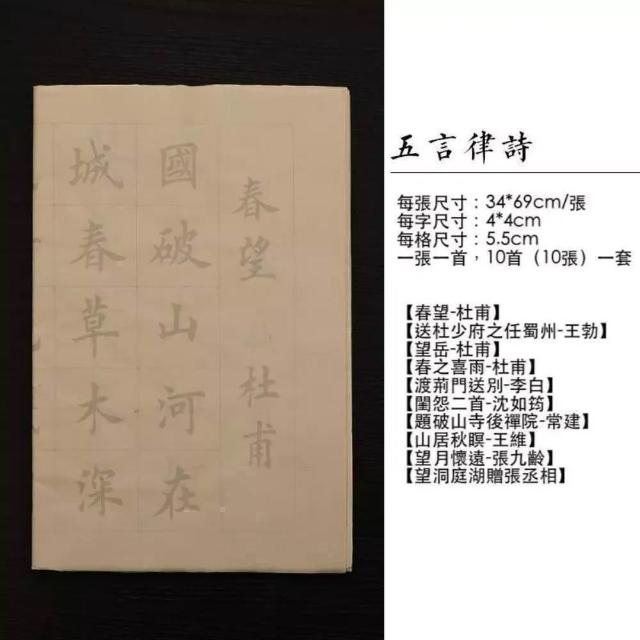 春望
杜甫
國破山河在
城春草木深
五言律詩
每張尺寸：34*69cm/張
每字尺寸：4*4cm
每格尺寸：5.5cm
一張一首，10首（10張）一套
【春望-杜甫】
【送杜少府之任蜀州-王勃】
【望岳-杜甫】
【春之喜雨-杜甫】
【渡荊門送別-李白】
【閨怨二首-沈如筠】
【題破山寺後禪院-常建】
【山居秋暝-王維】
【望月懷遠-張九齡】
【望洞庭湖贈張丞相】